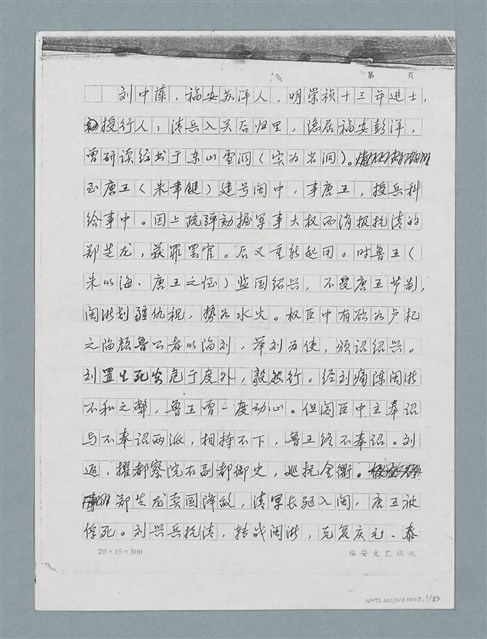 第 頁
刘中藻，福安苏洋人，明崇祯十三年进士，
授行人；清兵入关后归里，隐居福安彭洋，
曾研读经书于东山雪洞（实为岩洞）。
至唐王（朱聿键）建号闽中，事唐王，授兵科
给事中。因上疏弹劾握军事大权而消极抗清的
郑芝龙，获罪罢官。后又重新起用。时鲁王（
朱以海，唐王之侄）监国绍兴，不受唐王节制，
闽浙划疆仇视，势如水火。权臣中有欲为卢杞
之陷颜鲁公者以陷刘，举刘为使，颁诏绍兴。
刘置生死安危于度外，毅然行。经刘痛陈闽浙
不和之弊，鲁王曾一度动心。但闽臣中主奉诏
与不奉诏两派，相持不下，鲁王终不奉诏。刘
返，擢都察院右副都御史，巡抚金衢。
郑芝龙卖国降敌，清军长驱入闽，唐王被
俘死。刘兴兵抗清，转战闽浙，克复庆元、泰
20×15=300
福安文艺稿纸